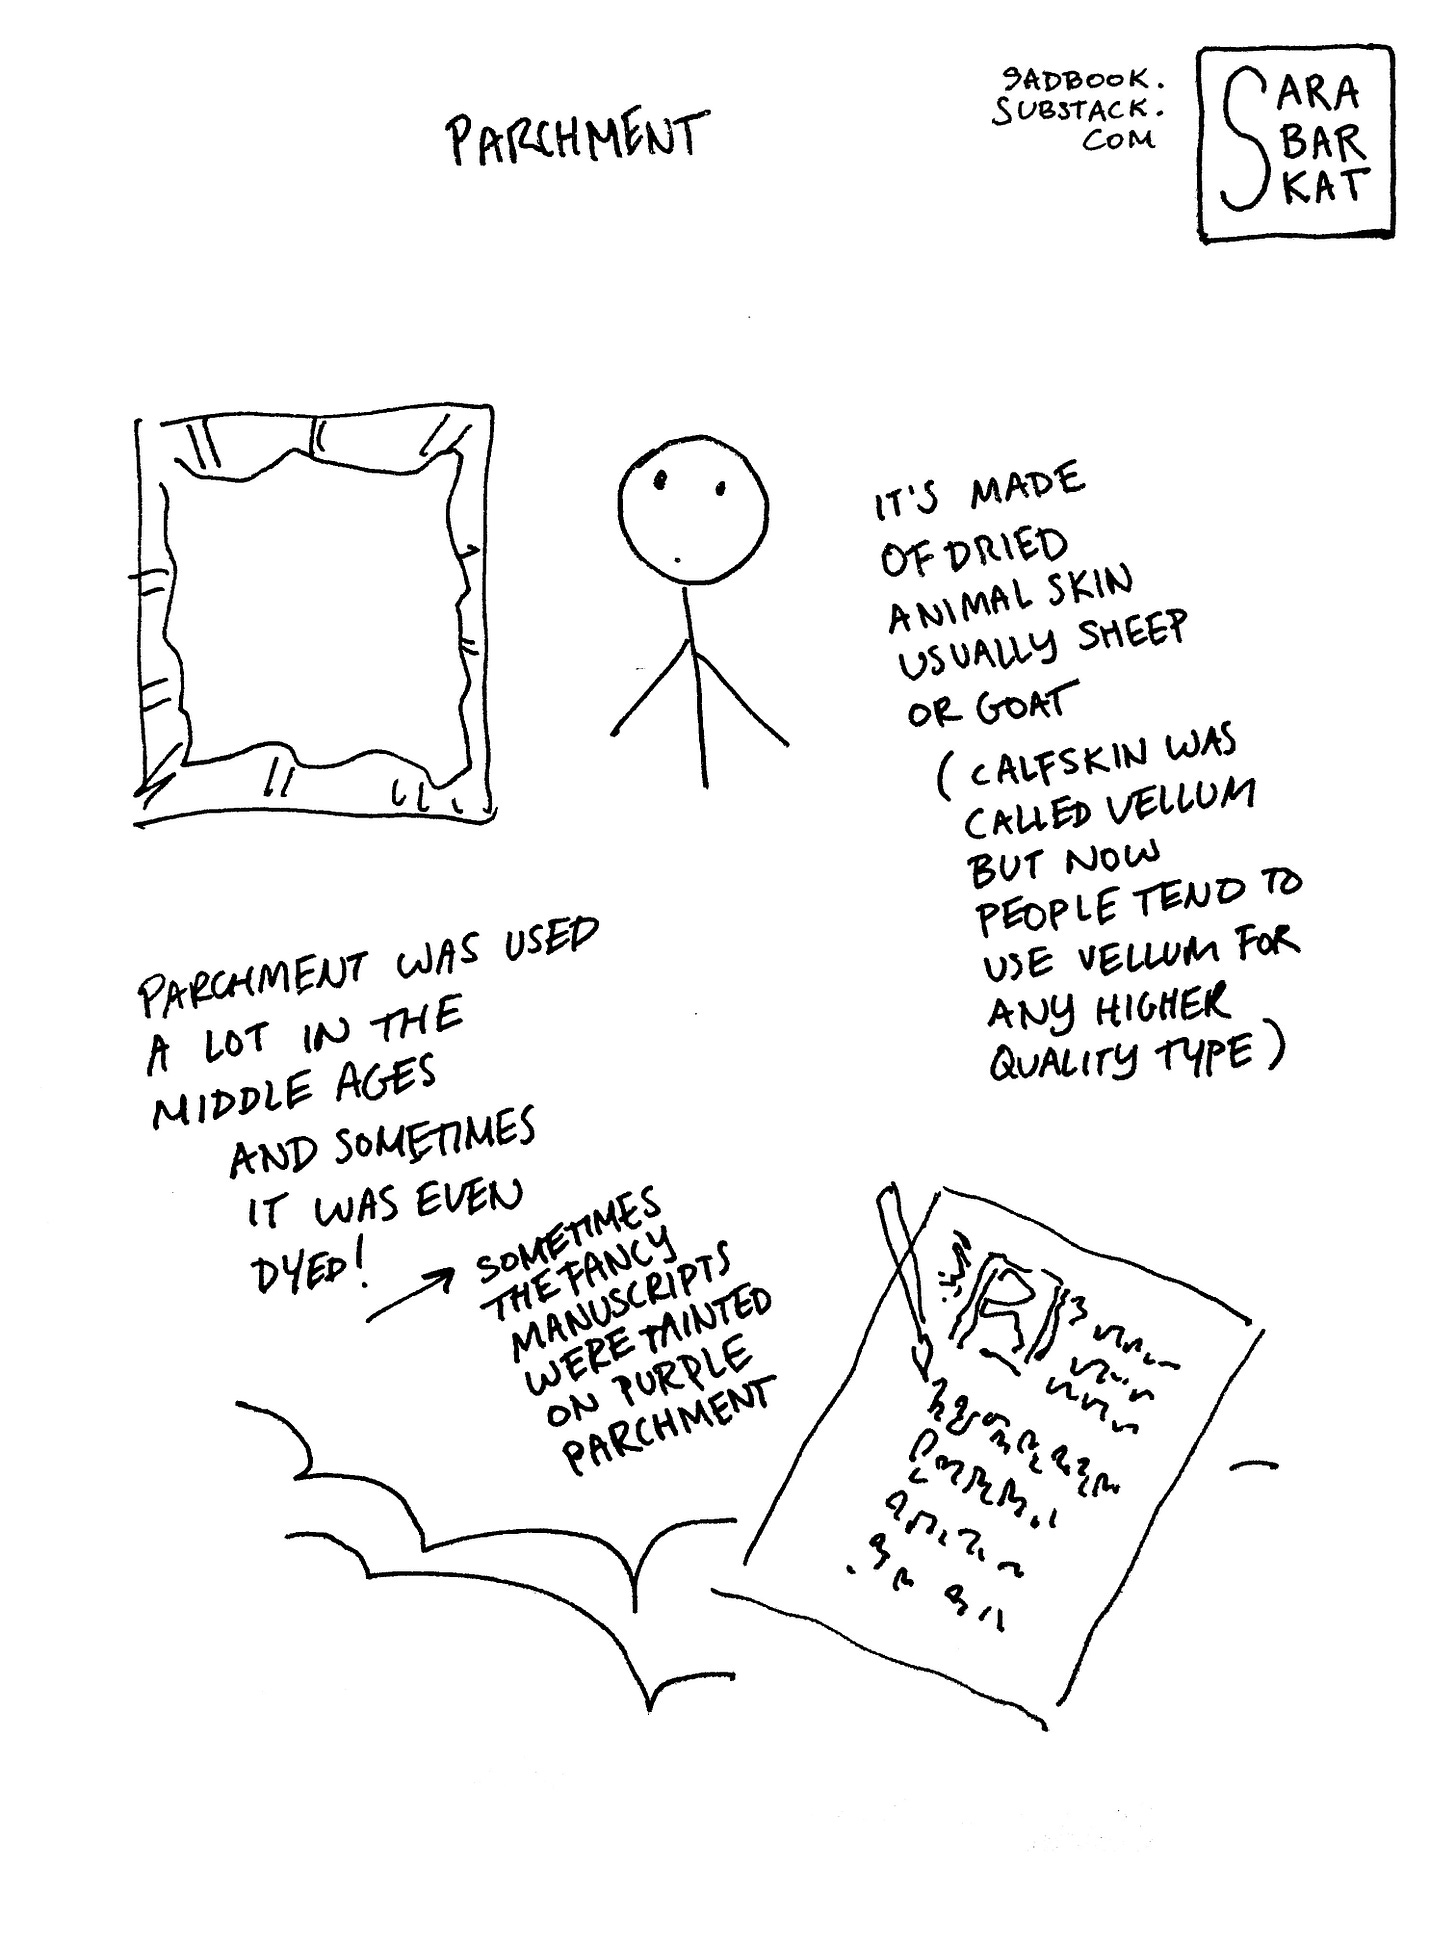 PARCHMENT
SADBOOK.
SUBSTACK.
COM
SARA
BAR
KAT
IT'S MADE
OF DRIED
ANIMAL SKIN
USUALLY SHEEP
OR GOAT
(CALFSKIN WAS
CALLED VELLUM
BUT NOW
PEOPLE TEND TO
USE VELLUM FOR
ANY HIGHER
QUALITY TYPE)
PARCHMENT WAS USED
A LOT IN THE
MIDDLE AGES
AND SOMETIMES
IT WAS EVEN
DYED!
SOMETIMES
THE FANCY
MANUSCRIPTS
WERE PAINTED
ON PURPLE
PARCHMENT